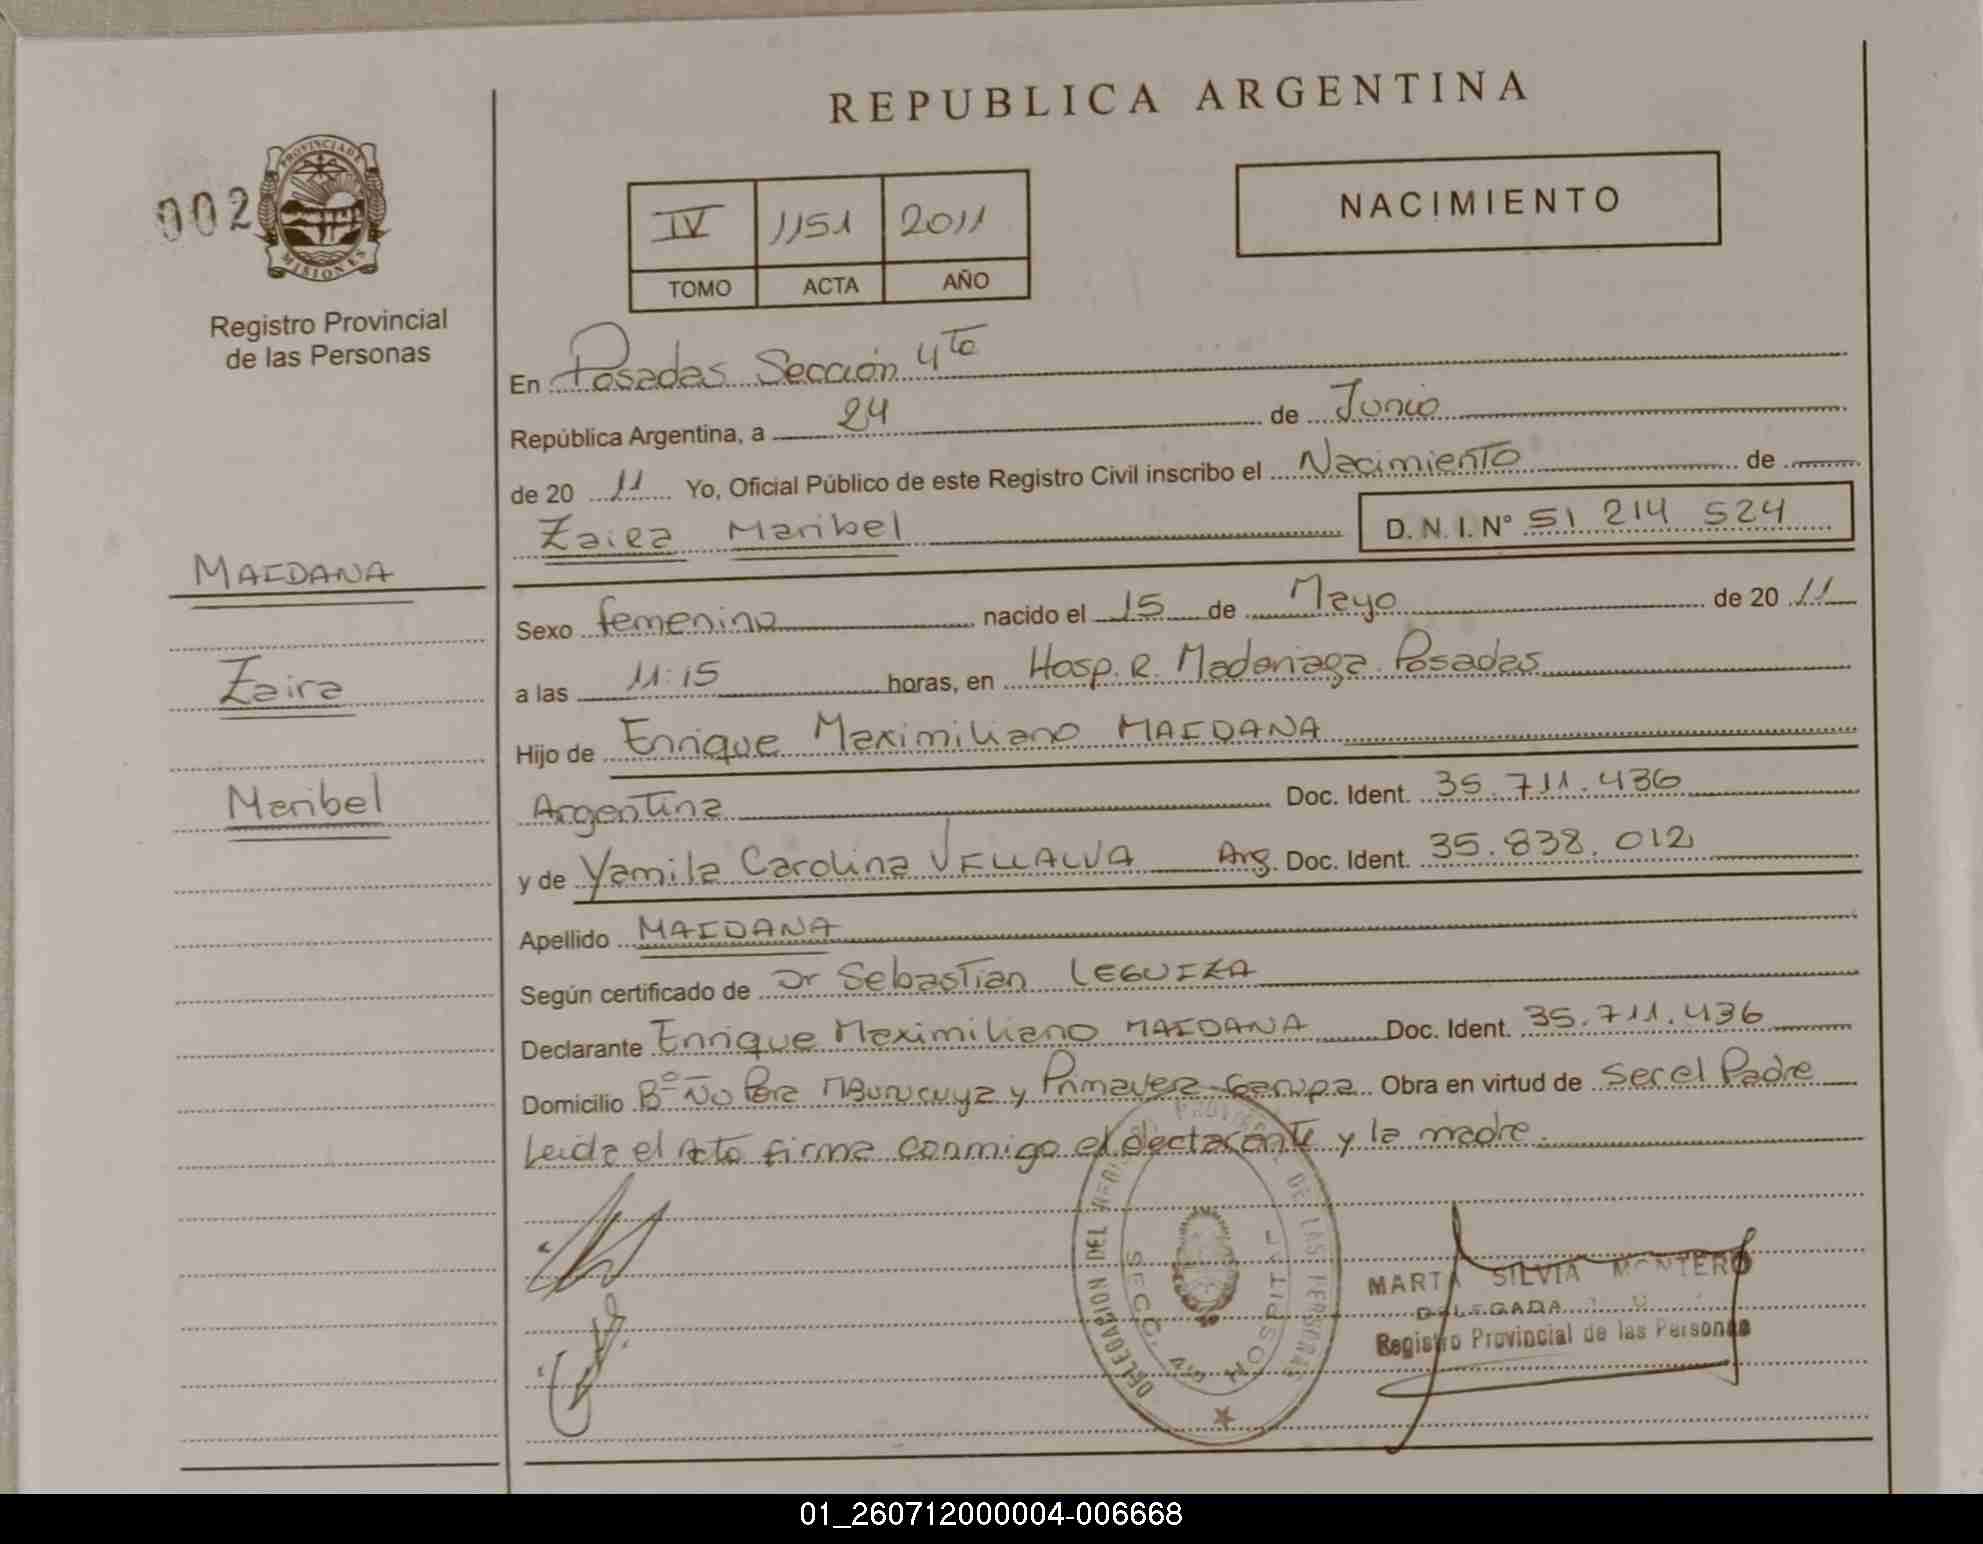 REPUBLICA ARGENTINA
002
PROVINCIA DE MISIONES
Registro Provincial
de las Personas
IV 1151 2011
TOMO ACTA AÑO
NACIMIENTO
En Posadas Sección 4ta
República Argentina, a 24 de Junio
de 20 11 Yo, Oficial Público de este Registro Civil inscribo el Nacimiento de
Zaira Maribel D. N. I. N° 51 214 524
MAIDANA
Zaira
Maribel
Sexo femenino nacido el 15 de Mayo de 20 11
a las 11:15 horas, en Hosp. R. Madariaga. Posadas
Hijo de Enrique Maximiliano MAIDANA
Argentina Doc. Ident. 35.711.436
y de Yamila Carolina VILLALVA Arg. Doc. Ident. 35.838.012
Apellido MAIDANA
Según certificado de Dr Sebastian LEGUIZA
Declarante Enrique Maximiliano MAIDANA Doc. Ident. 35.711.436
Domicilio Bº Ño Pora Mburucuya y Primavera Garupa Obra en virtud de Ser el Padre
Leida el Acta firma conmigo el declarante y la madre.
DELEGACION DEL REGISTRO PROVINCIAL DE LAS PERSONAS
SECC. 4ta HOSPITAL
MARTA SILVIA MONTERO
DELEGADA
Registro Provincial de las Personas
01_260712000004-006668